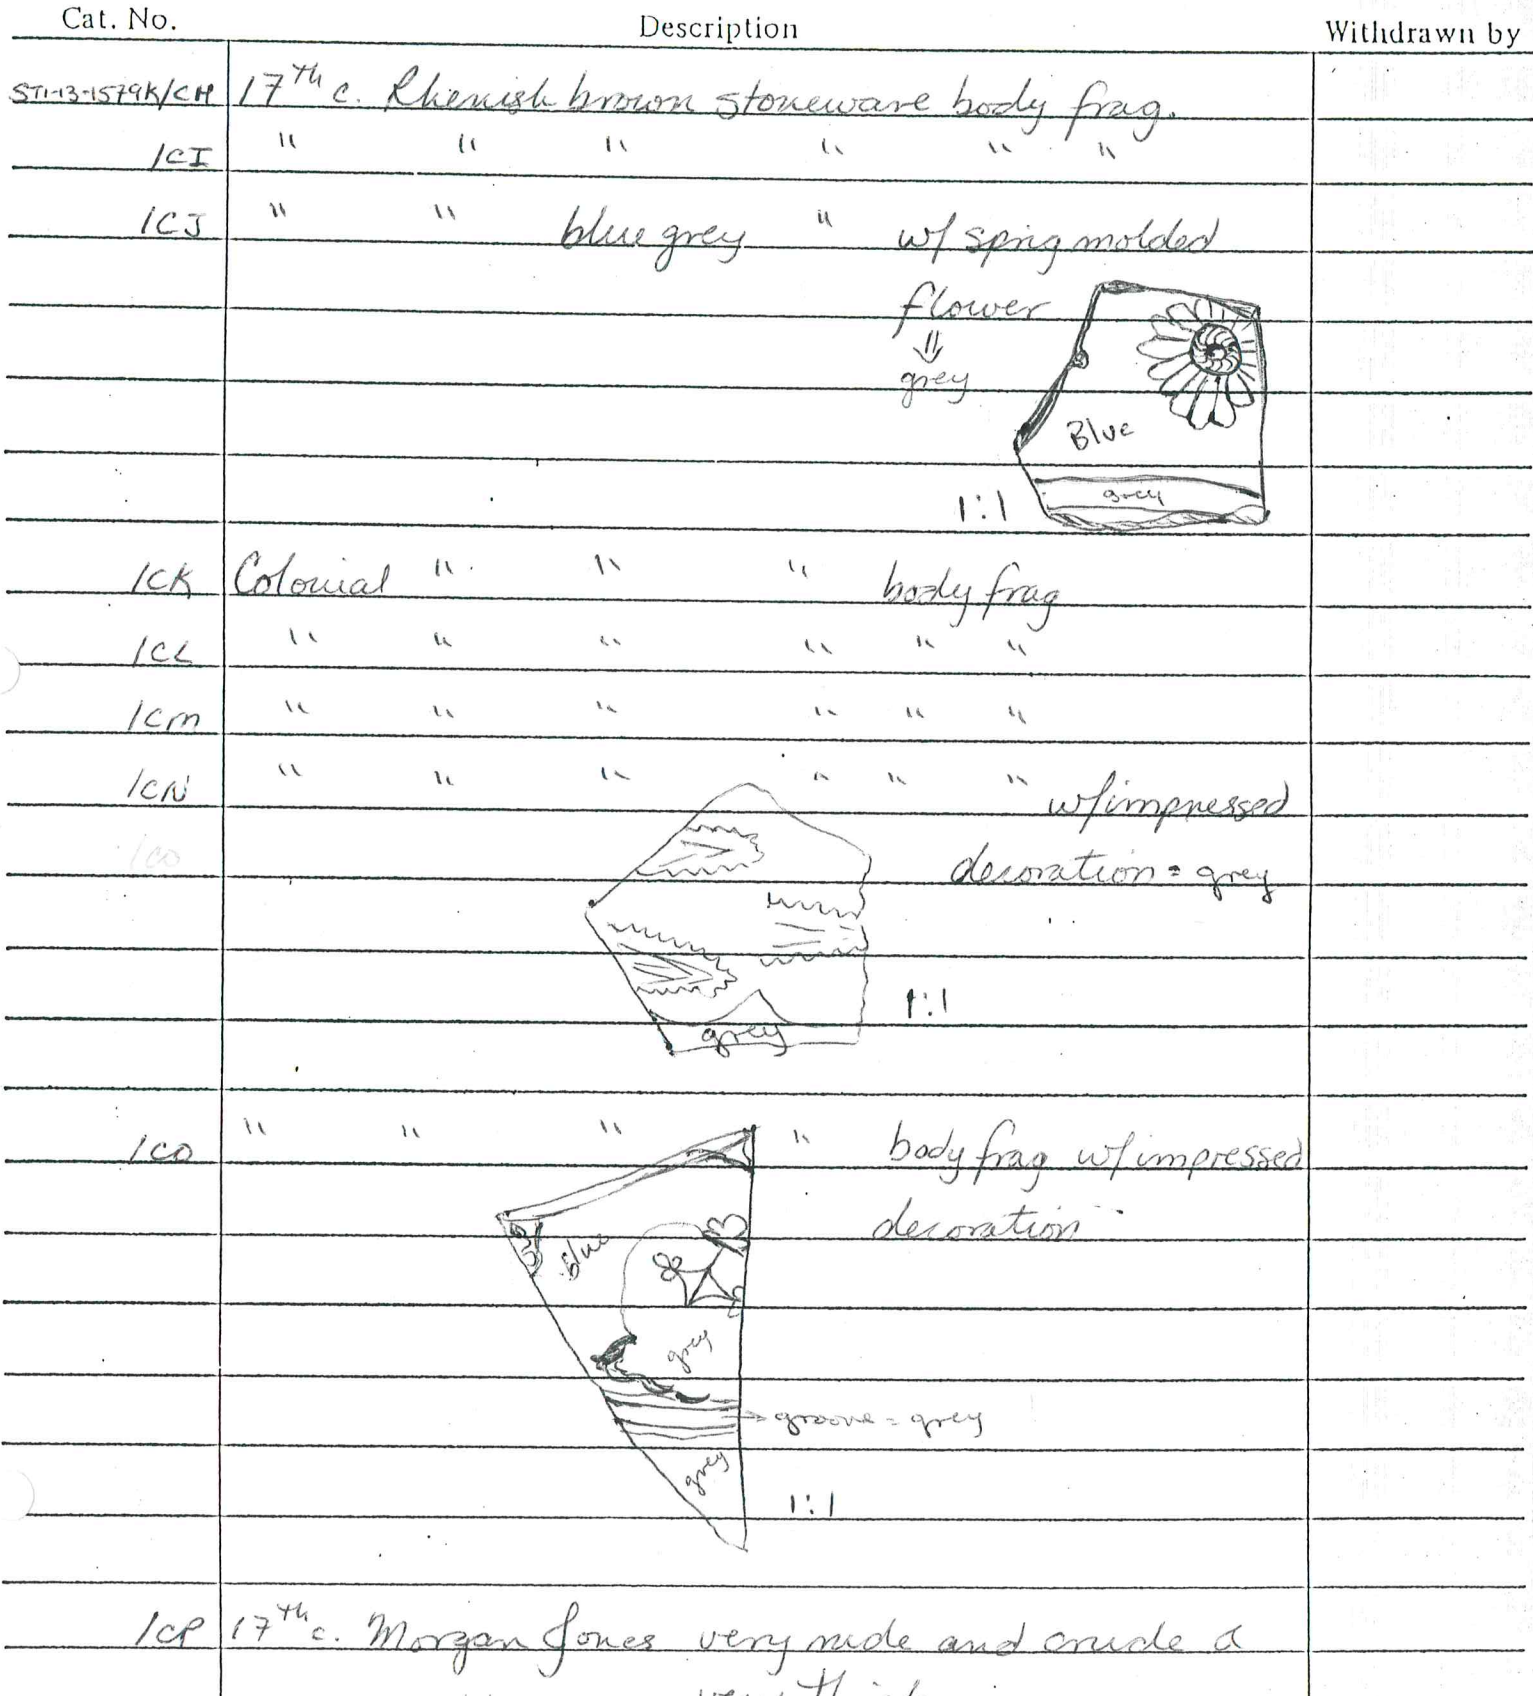 Cat. No. Description Withdrawn by
ST1-13-1579K/CH 17th c. Rhenish brown stoneware body frag.
/CI " " " " " "
/CJ " " blue grey " w/ sprig molded
flower
⇓
grey
Blue
grey
1:1
/CK Colonial " " " body frag
/CL " " " " " "
/CM " " " " " "
/CN " " " " " " w/impressed
/CO decoration = grey
1:1
grey
/CO " " " " body frag w/impressed
decoration
blue
grey
→ groove = grey
grey
1:1
/CP 17th c. Morgan Jones very rude and crude a
very thick